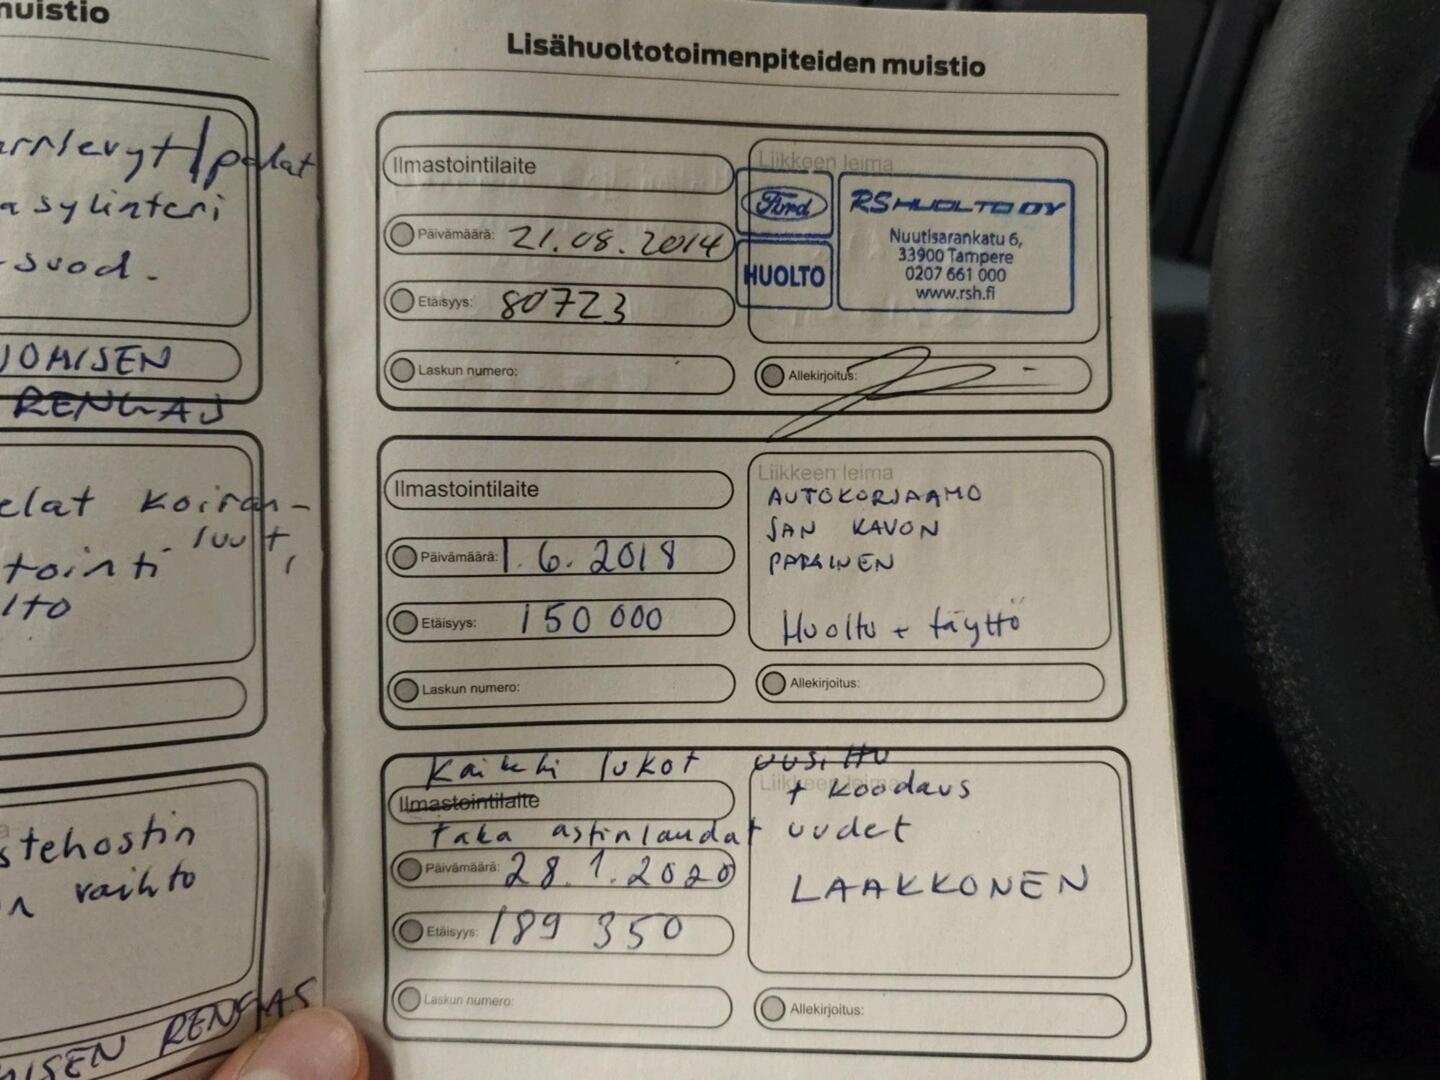 muistio
palat
asylinteri
suod.
RENGAS
koiran-
luut,
tointi
lto
stehostin
vaihto
RENGAS
Lisähuoltotoimenpiteiden muistio
Ilmastointilaite
Päivämäärä: 21.08.2014
Etäisyys: 80723
Laskun numero:
Liikkeen leima
Ford
HUOLTO
RS HUOLTO OY
Nuutisarankatu 6,
33900 Tampere
0207 661 000
www.rsh.fi
Allekirjoitus:
Ilmastointilaite
Päivämäärä: 1.6.2018
Etäisyys: 150 000
Laskun numero:
Liikkeen leima
AUTOKORJAAMO
JAN KAVON
PARAINEN
Huolto + täyttö
Allekirjoitus:
Kaikki lukot uusittu
+ koodaus
Ilmastointilaite
Taka astinlaudat uudet
Päivämäärä: 28.1.2020
Etäisyys: 189 350
Laskun numero:
Liikkeen leima
LAAKKONEN
Allekirjoitus: